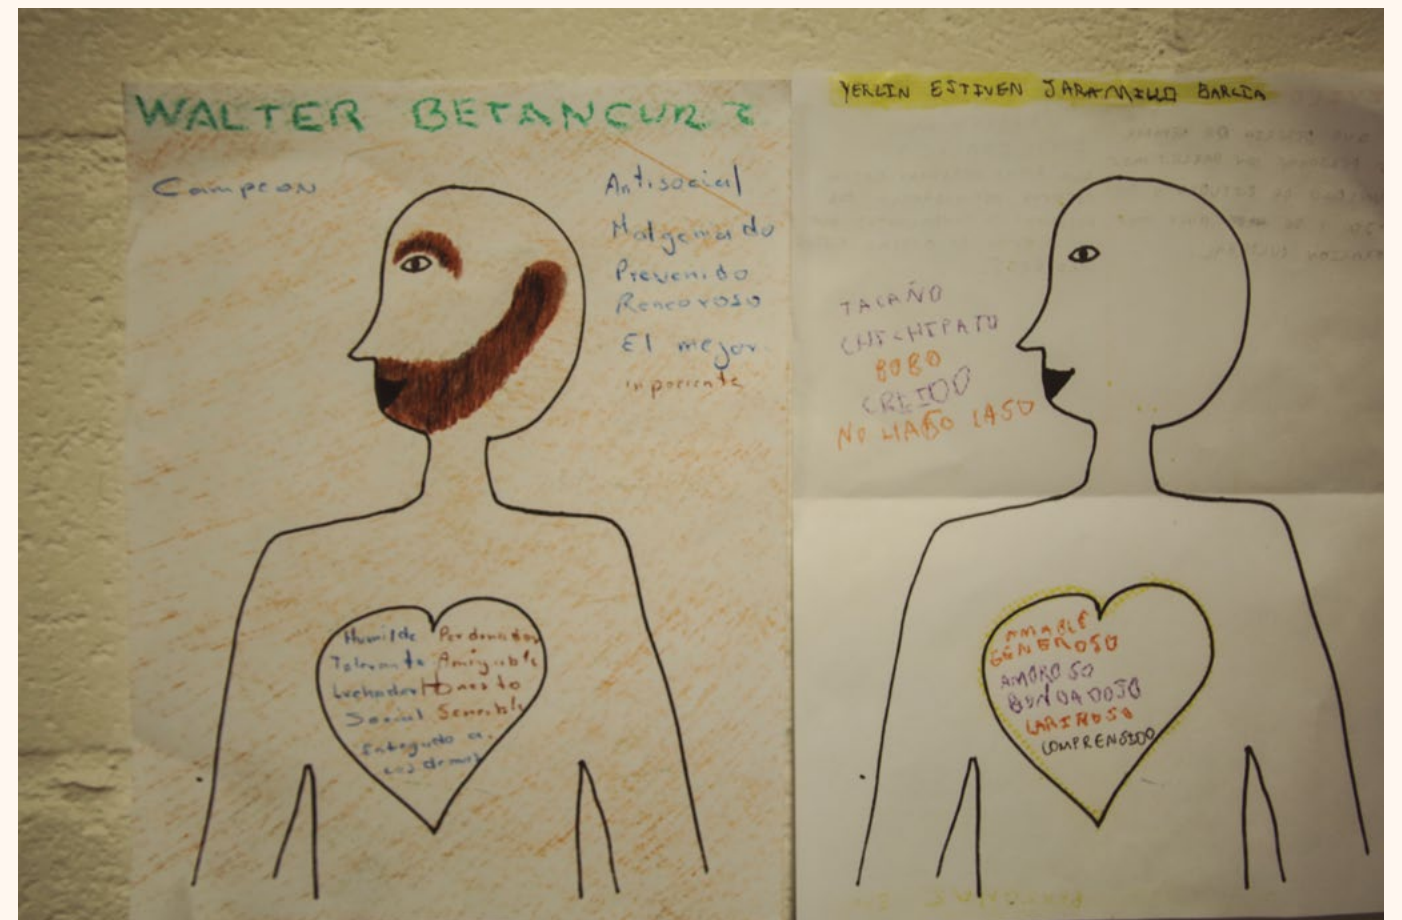 WALTER BETANCUR
Campeon
Antisocial
Malgeniado
Prevenido
Rencoroso
El mejor
inpaciente
Humilde Perdonador
Tolerante Amigable
Luchador Honesto
Social Sensible
a
los demas
YERLIN ESTIVEN JARAMILLO GARCIA
TACAÑO
CHICHIPATO
BOBO
CREIDO
NO HAGO CASO
AMABLE
GENEROSO
AMOROSO
BONDADOSO
CARIÑOSO
COMPRENSIDO